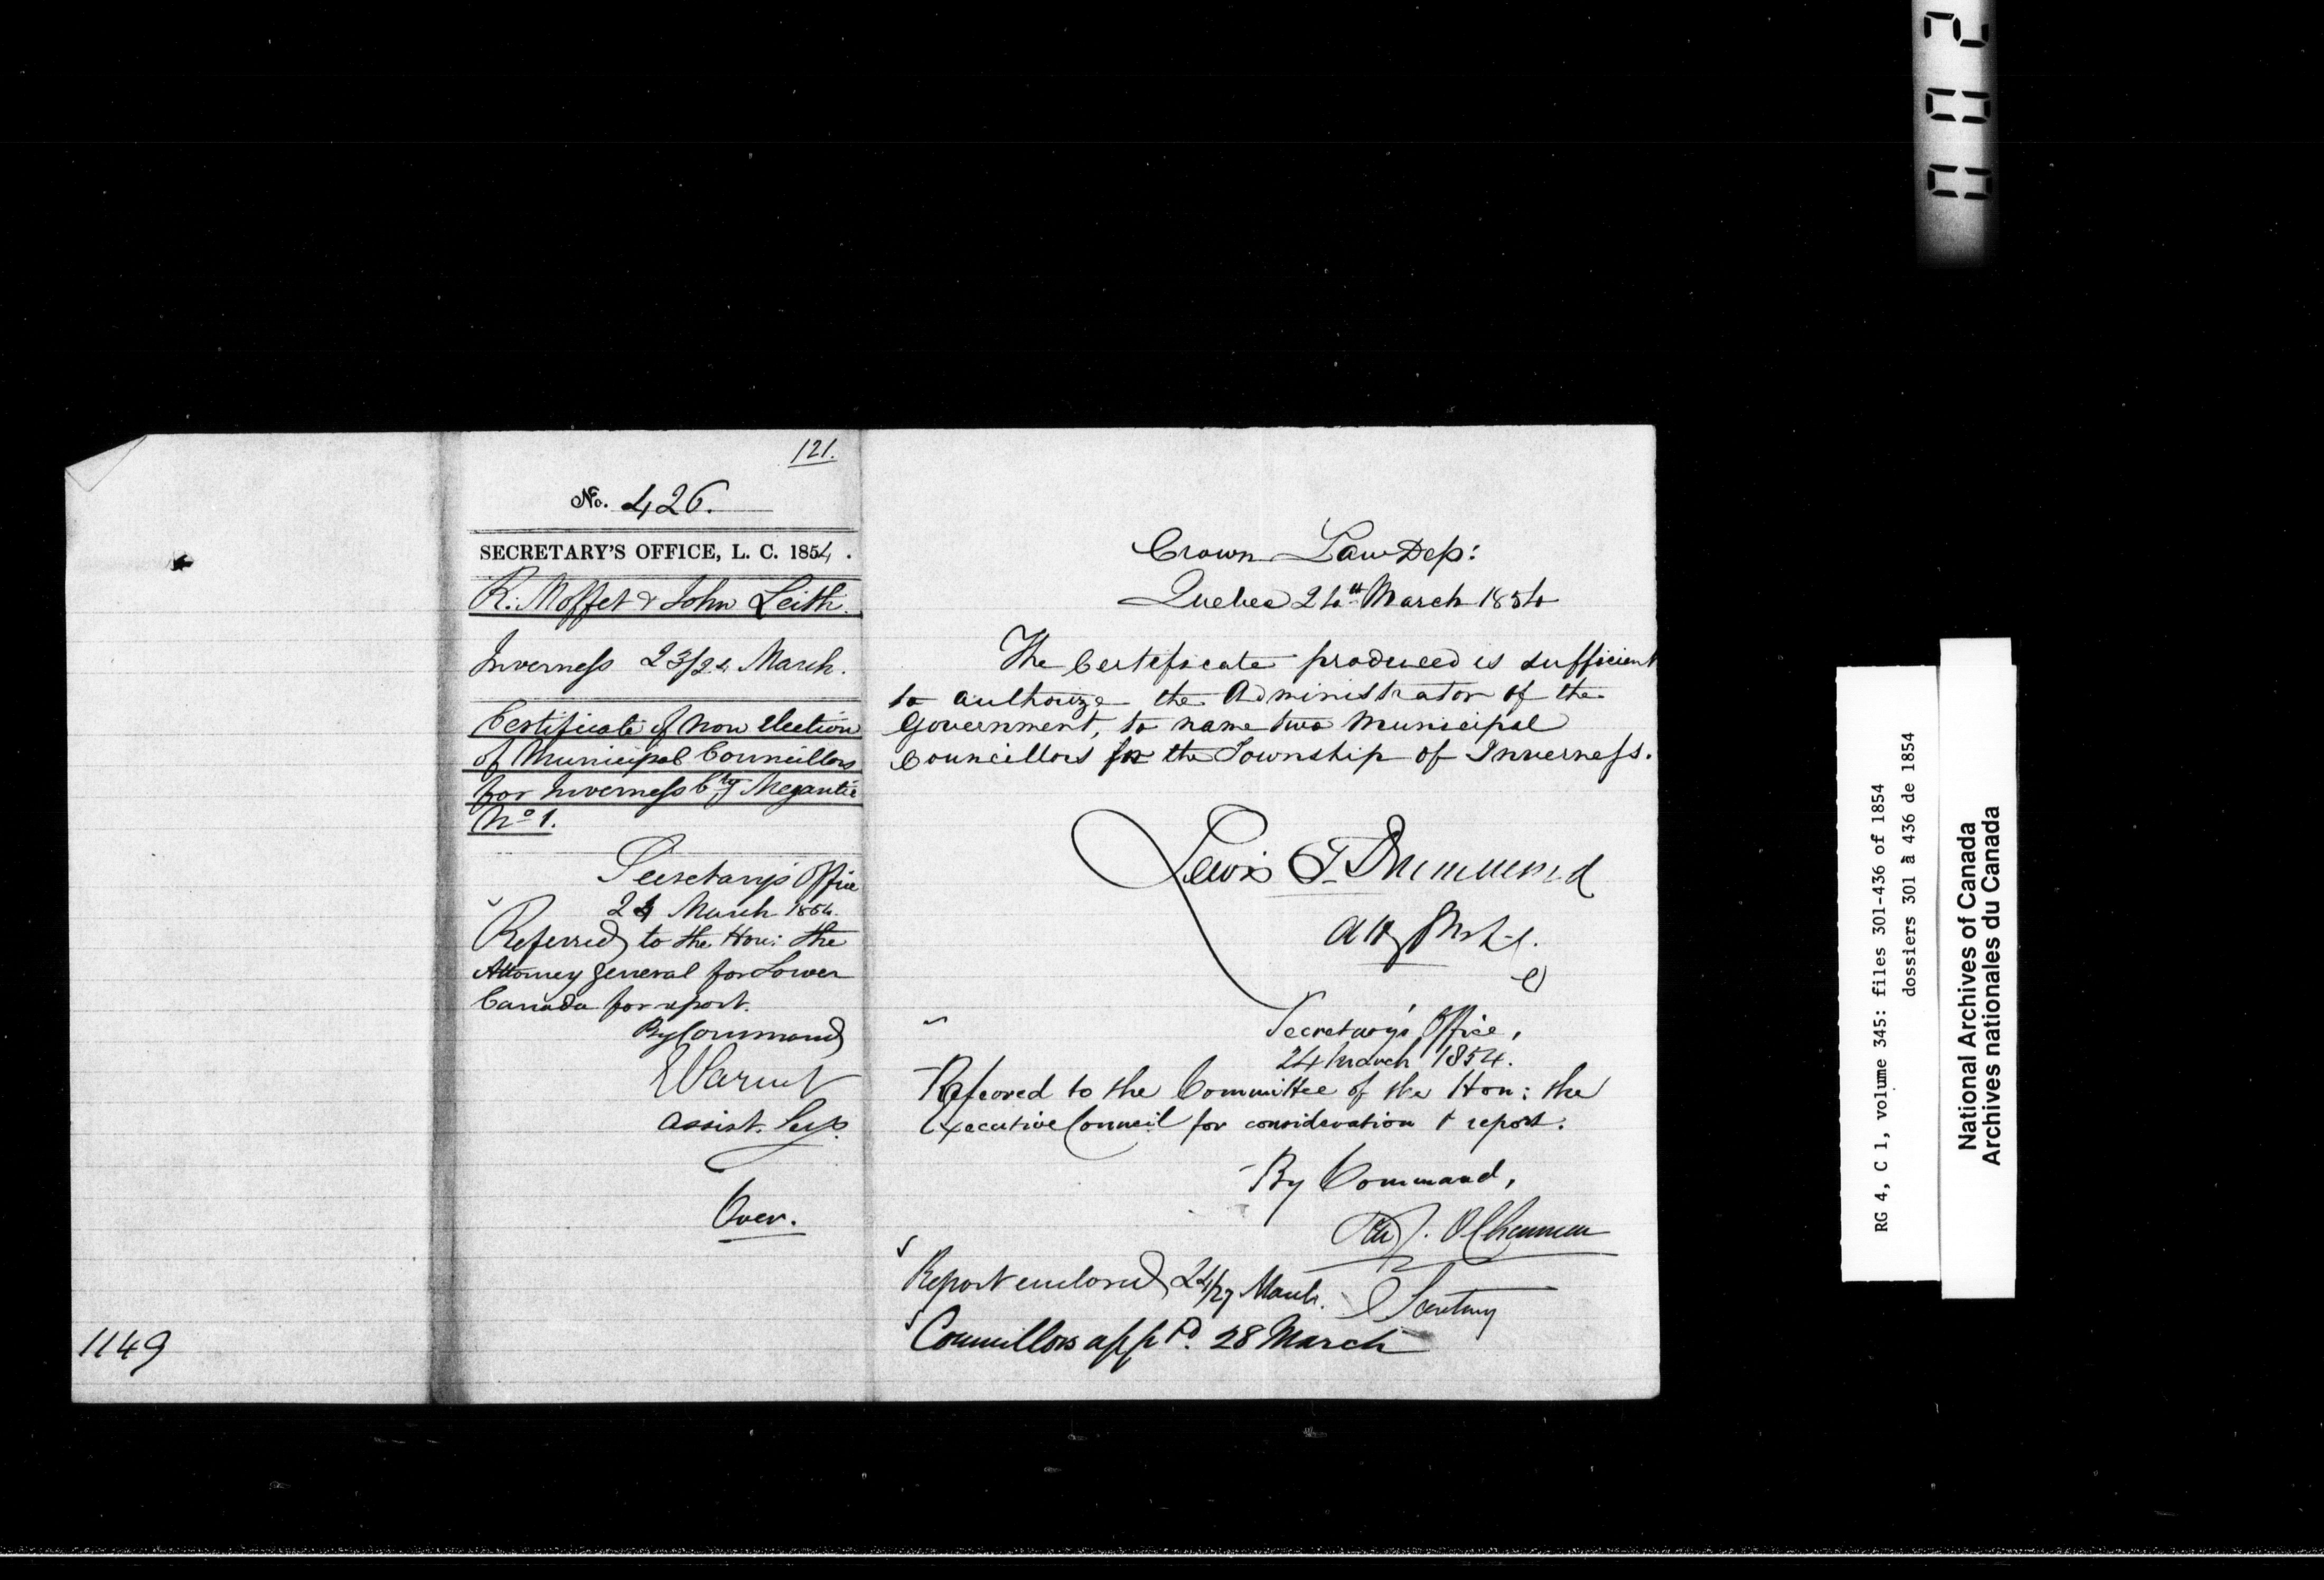 121.
No. 426.
SECRETARY'S OFFICE, L. C. 1854.
R. Moffet & John Leith.
Inverness 23/24 March.
Certificate of non election
of Municipal Councillors
for Inverness Cty Megantic
No 1.
Secretary's Office
24 March 1854.
Referred to the Hon: the
Attorney General for Lower
Canada for report.
By Command
E Parent
Assist. Secy.
Over.
1149
Crown Law Dep:
Quebec 24th March 1854
The Certificate produced is sufficient
to authorize the Administrator of the
Government, to name two Municipal
Councillors for the Township of Inverness.
Lewis T. Drummond
Atty
Secretary's Office,
24 March 1854.
Referred to the Committee of the Hon: the
Executive Council for consideration & report.
By Command,
Secretary
Report enclosed 24/27 March.
Councillors appd. 28 March
RG 4, C 1, volume 345: files 301-436 of 1854
dossiers 301 à 436 de 1854
National Archives of Canada
Archives nationales du Canada
002